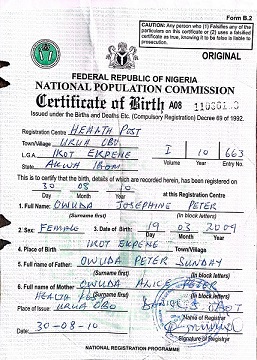 Form B.2
CAUTION: Any person who (1) Falsifies any of the particulars on this certificate or (2) uses a falsified certificate as true, knowing it to be false is liable to prosecution.
ORIGINAL
FEDERAL REPUBLIC OF NIGERIA
NATIONAL POPULATION COMMISSION
Certificate of Birth A08
Issued under the Births and Deaths Etc. (Compulsory Registration) Decree 69 of 1992.
Registration Centre HEALTH POST
Town/Village URUA OBO
L.G.A. IKOT EKPENE I 10 663
State AKWA IBOM Volume Year Entry No.
This is to certify that the birth, details of which are recorded herein, has been registered on
30 08 10 at this Registration Centre
Day Month Year
1. Full Name: OWUDA JOSEPHINE PETER
(Surname first) (In block letters)
2. Sex: FEMALE 3. Date of Birth: 19 03 2009
Day Month Year
4. Place of Birth IKOT EKPENE Town/Village
5. Full name of Father OWUDA PETER SUNDAY
(Surname first) (In block letters)
6. Full name of Mother OWUDA ALICE PETER
HEALTH POST (Surname first) (In block letters)
Place of Issue: URUA OBO
Name of Registrar
Date: 30-08-10
Signature of Registrar
NATIONAL REGISTRATION PROGRAMME